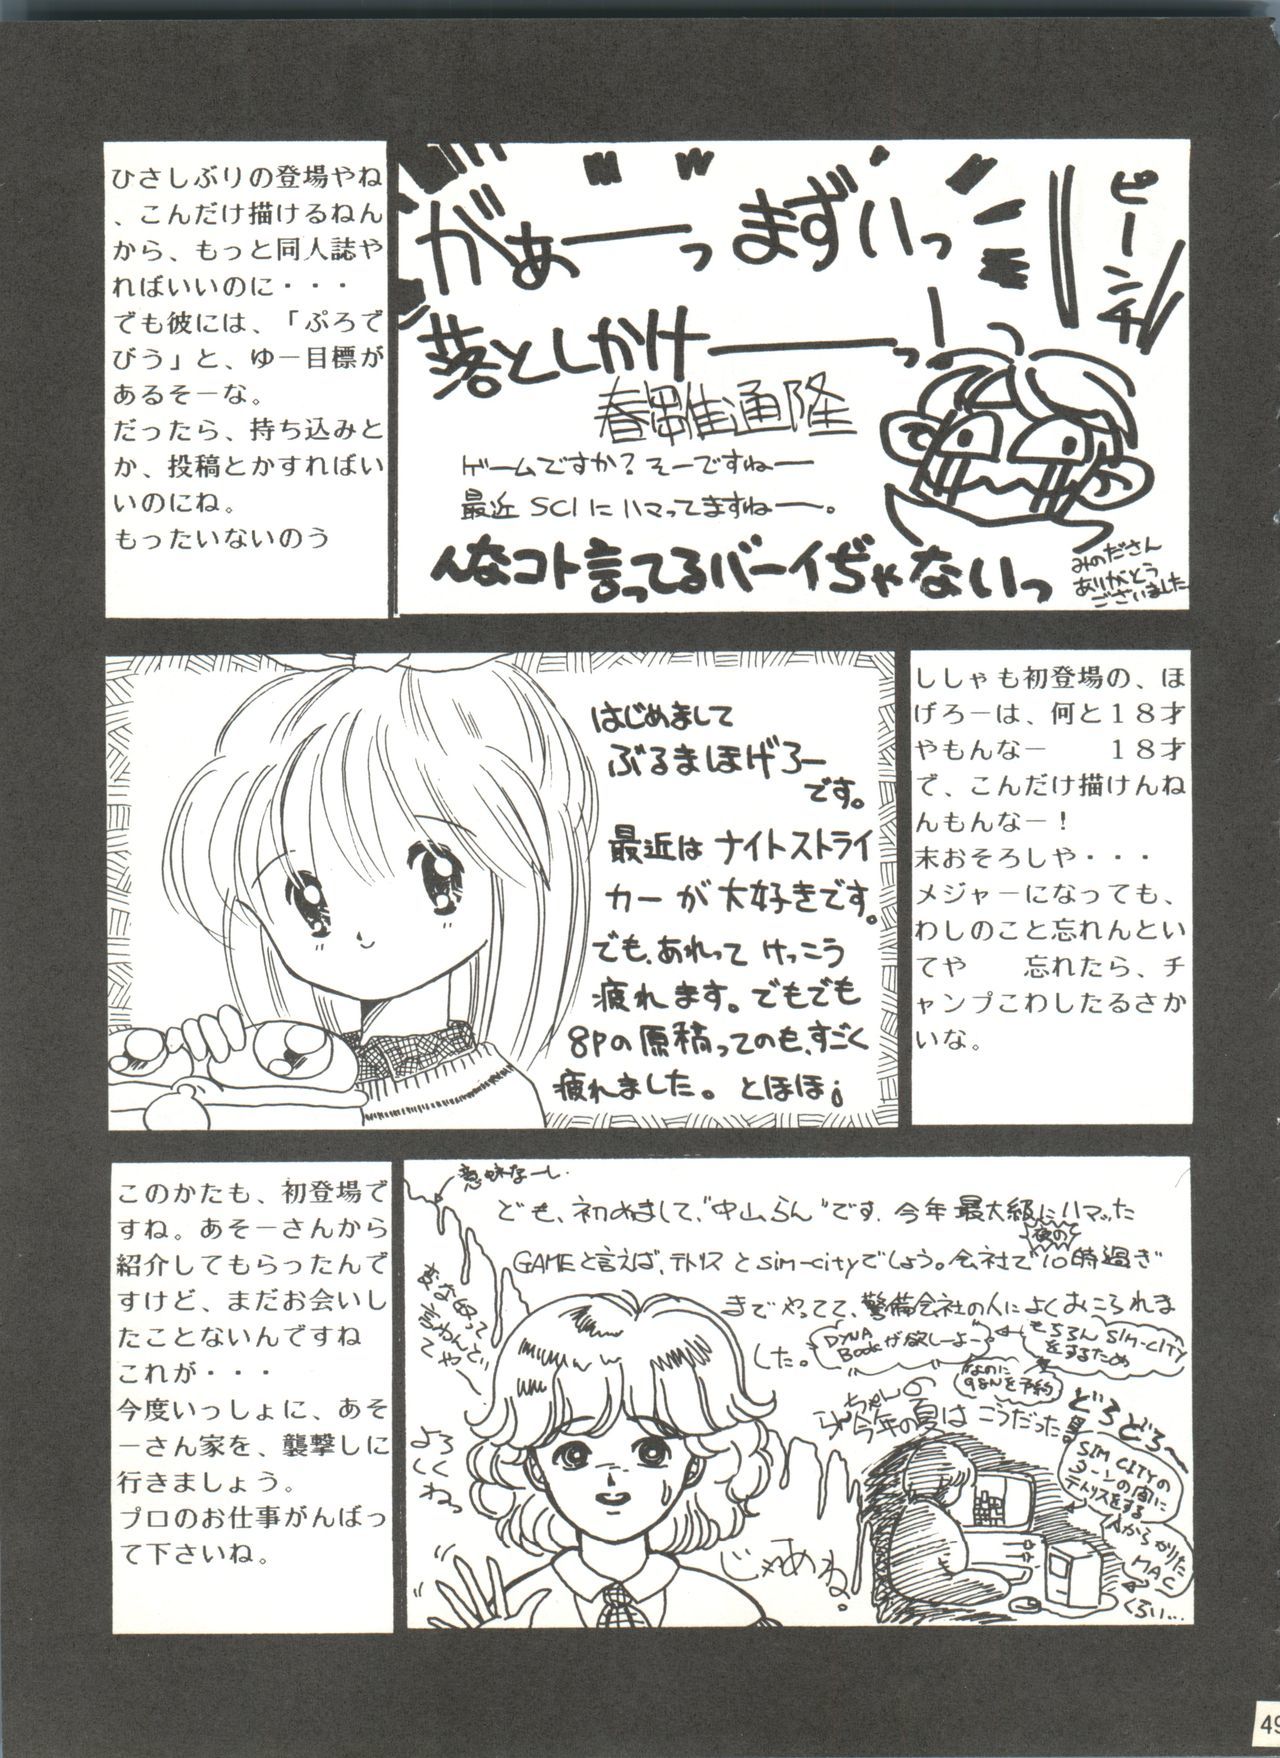 ひさしぶりの登場やね
、こんだけ描けるねん
から、もっと同人誌や
ればいいのに・・・
でも彼には、「ぷろで
びう」と、ゆー目標が
あるそーな。
だったら、持ち込みと
か、投稿とかすればい
いのにね。
もったいないのう
がぁーっまずいっ
ピーンチ
落としかけーっ!
春雛通隆
ゲームですか?そーですねー
最近SCIにハマってますねー。
んなコト言ってるバーイぢゃないっ
みのださん
ありがとう
ございました
はじめまして
ぶるまほげろー
です。
最近はナイトストライ
カーが大好きです。
でも、あれってけっこう
疲れます。でもでも
8Pの原稿ってのも、すごく
疲れました。とほほ
ししゃも初登場の、ほ
げろーは、何と18才
やもんなー 18才
で、こんだけ描けんね
んもんなー!
末おそろしや・・・
メジャーになっても、
わしのこと忘れんとい
てや 忘れたら、チ
ャンプこわしたるさか
いな。
このかたも、初登場で
すね。あそーさんから
紹介してもらったんで
すけど、まだお会いし
たことないんですね
これが・・・
今度いっしょに、あそ
ーさん家を、襲撃しに
行きましょう。
プロのお仕事がんばっ
て下さいね。
意味なーし.
ども、初めまして、"中山らん"です.今年最大級にハマッた
GAMEと言えば、テトリスとsim-cityでしょう。会社で夜の10時過ぎ
までやってて、警備会社の人によくおこられま
した。
DYNA
Bookが欲しーよー
もちろんSIM-CITY
をするため
なのに
98Nを予約
変な奴って
言わんでい
てやー
よろ
しく
ねっ
らんちゃんの
今年の夏はこうだった
どろどろ〜
SIM CITYの
ターンの間に
テトリスをする
Aからかりた
MAC
くらい...
じゃあね。
49